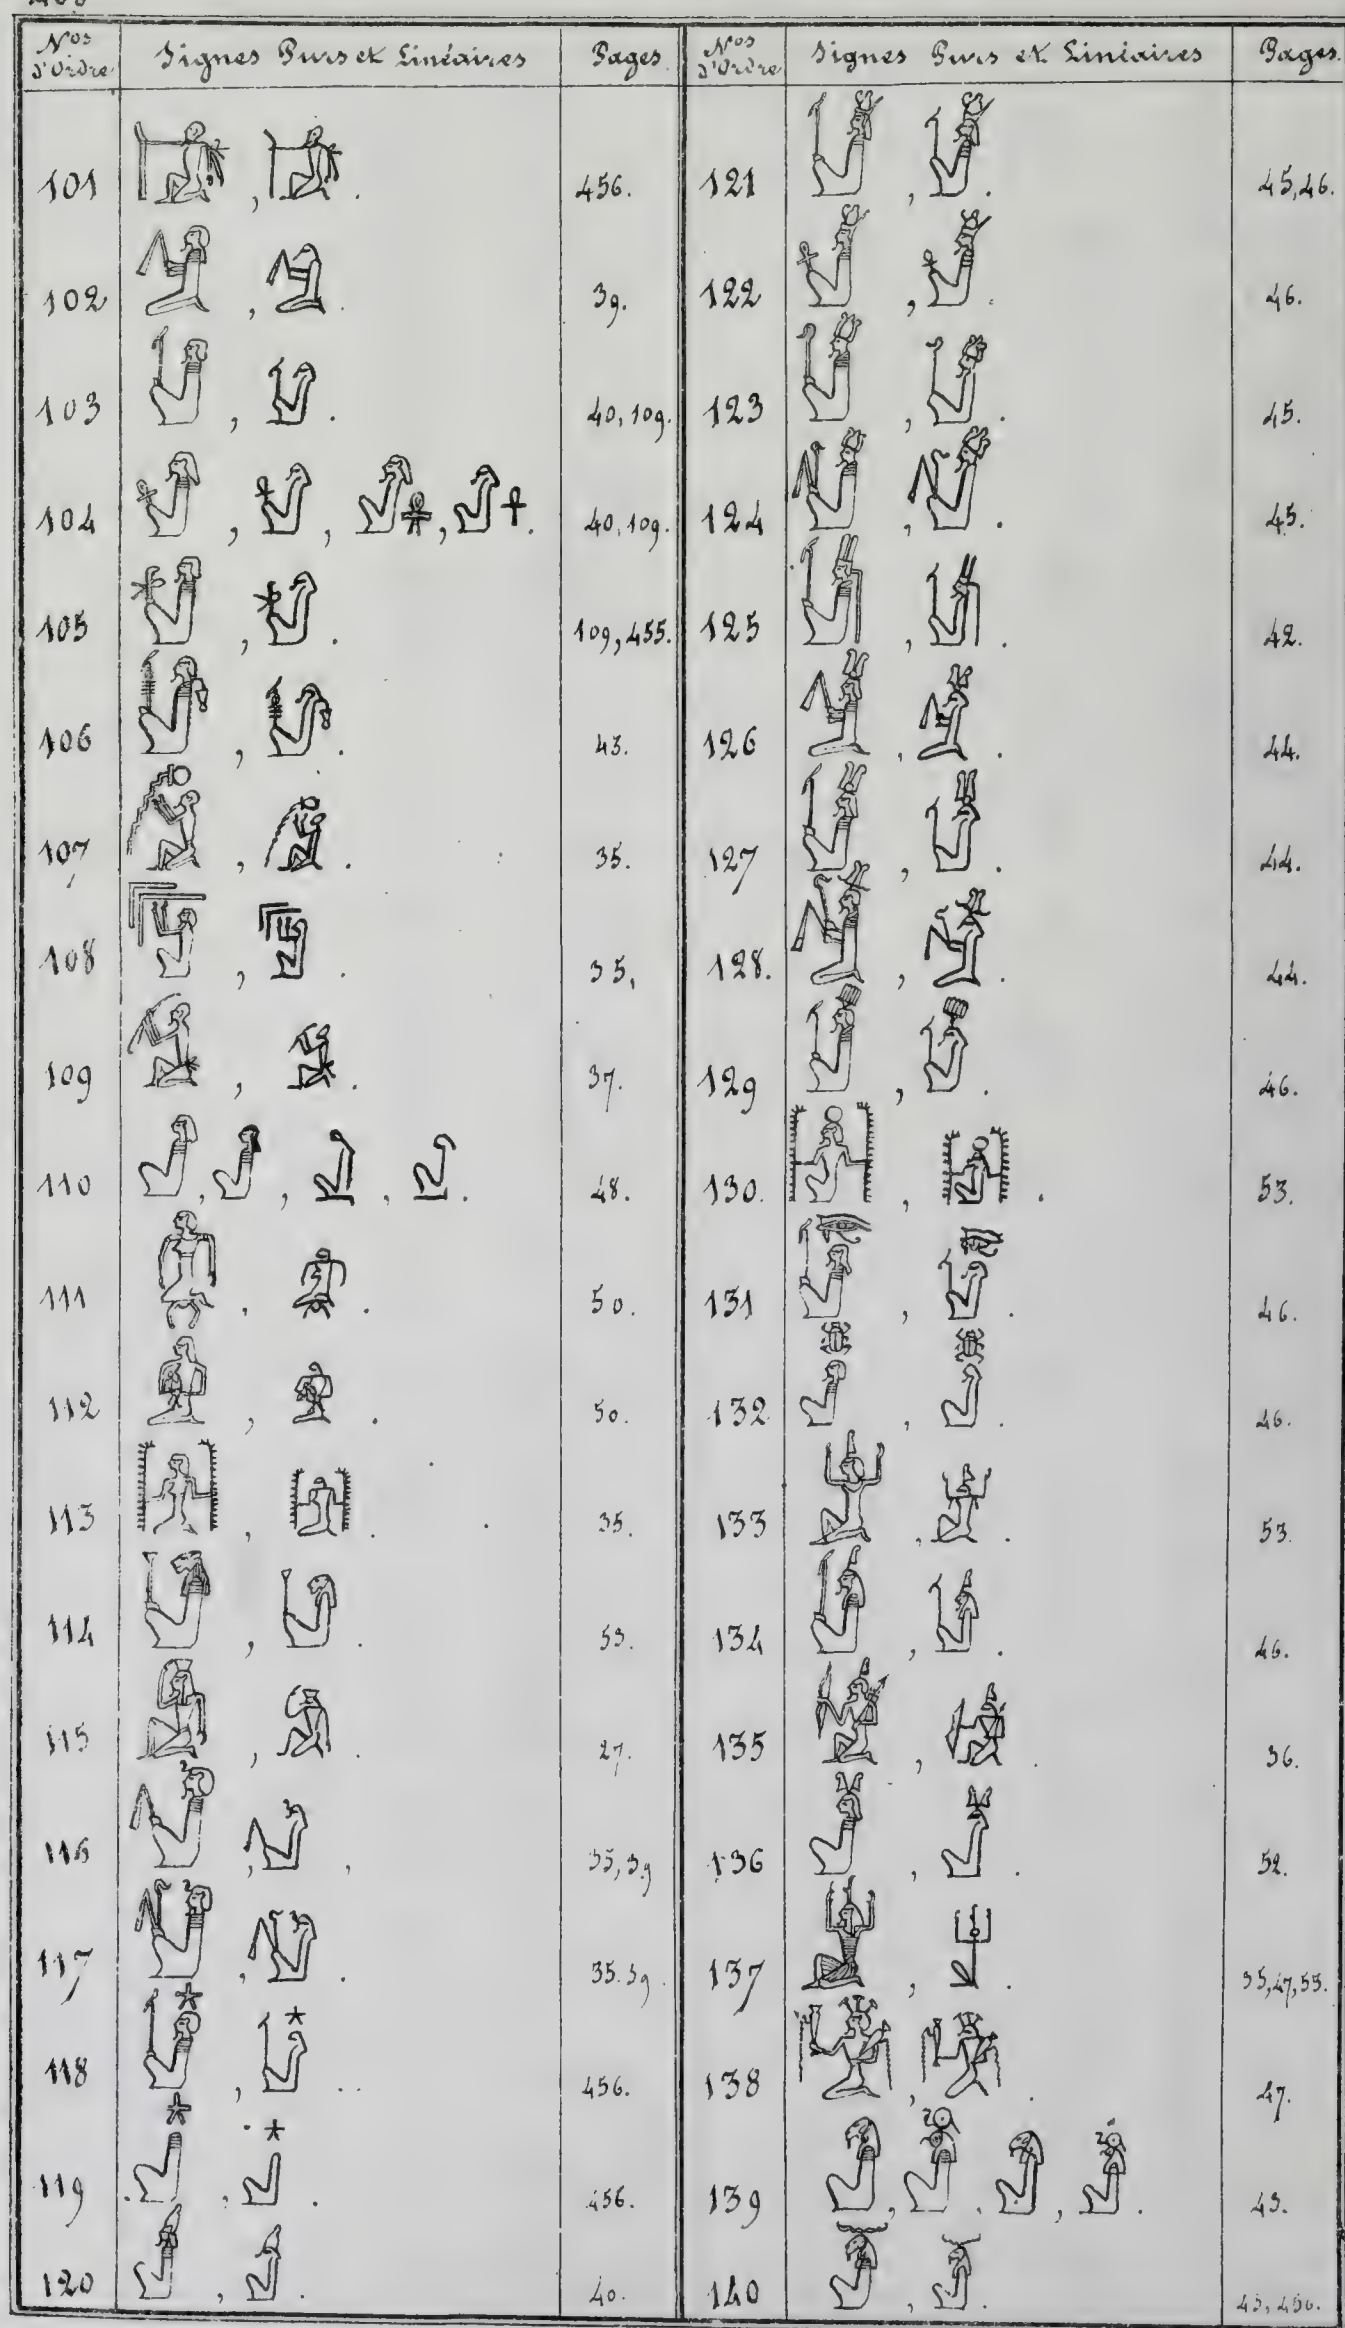 Nos d'Ordre Signes Purs et Linéaires Pages Nos d'Ordre Signes Purs et Linéaires Pages.
101 , . 456. 121 , . 45,46.
102 , . 39. 122 , . 46.
103 , . 40, 109. 123 , . 45.
104 , , , . 40, 109. 124 , . 45.
105 , . 109, 455. 125 , . 42.
106 , . 43. 126 , . 44.
107 , . 35. 127 , . 44.
108 , . 35, 128. , . 44.
109 , . 37. 129 , . 46.
110 , , , . 48. 130. , . 53.
111 , . 50. 131 , . 46.
112 , . 50. 132 , . 46.
113 , . 35. 133 , . 53.
114 , . 53. 134 , . 46.
115 , . 27. 135 , . 36.
116 , , 35, 39 136 , . 52.
117 , . 35. 39. 137 , . 35,47,53.
118 , .. 456. 138 , . 47.
119 , . 456. 139 , , , . 43.
120 , . 40. 140 , .